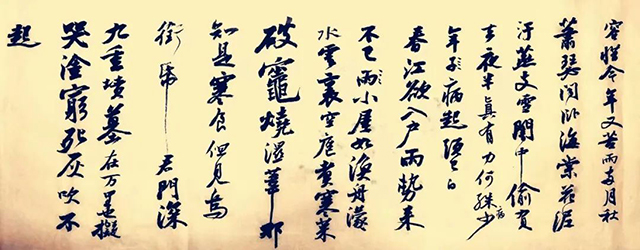 容惜今年又苦雨兩月秋
蕭瑟聞卧海棠花泥
汙燕支雪闇中偷負
去夜半真有力何殊少病
年子病起頭已白
春江欲入戶雨勢來
不已雨小屋如漁舟濛
水雲裏空庖煮寒菜
破竈燒濕葦那
知是寒食但見烏
銜帋君門深
九重墳墓在万里擬
哭塗窮死灰吹不
起